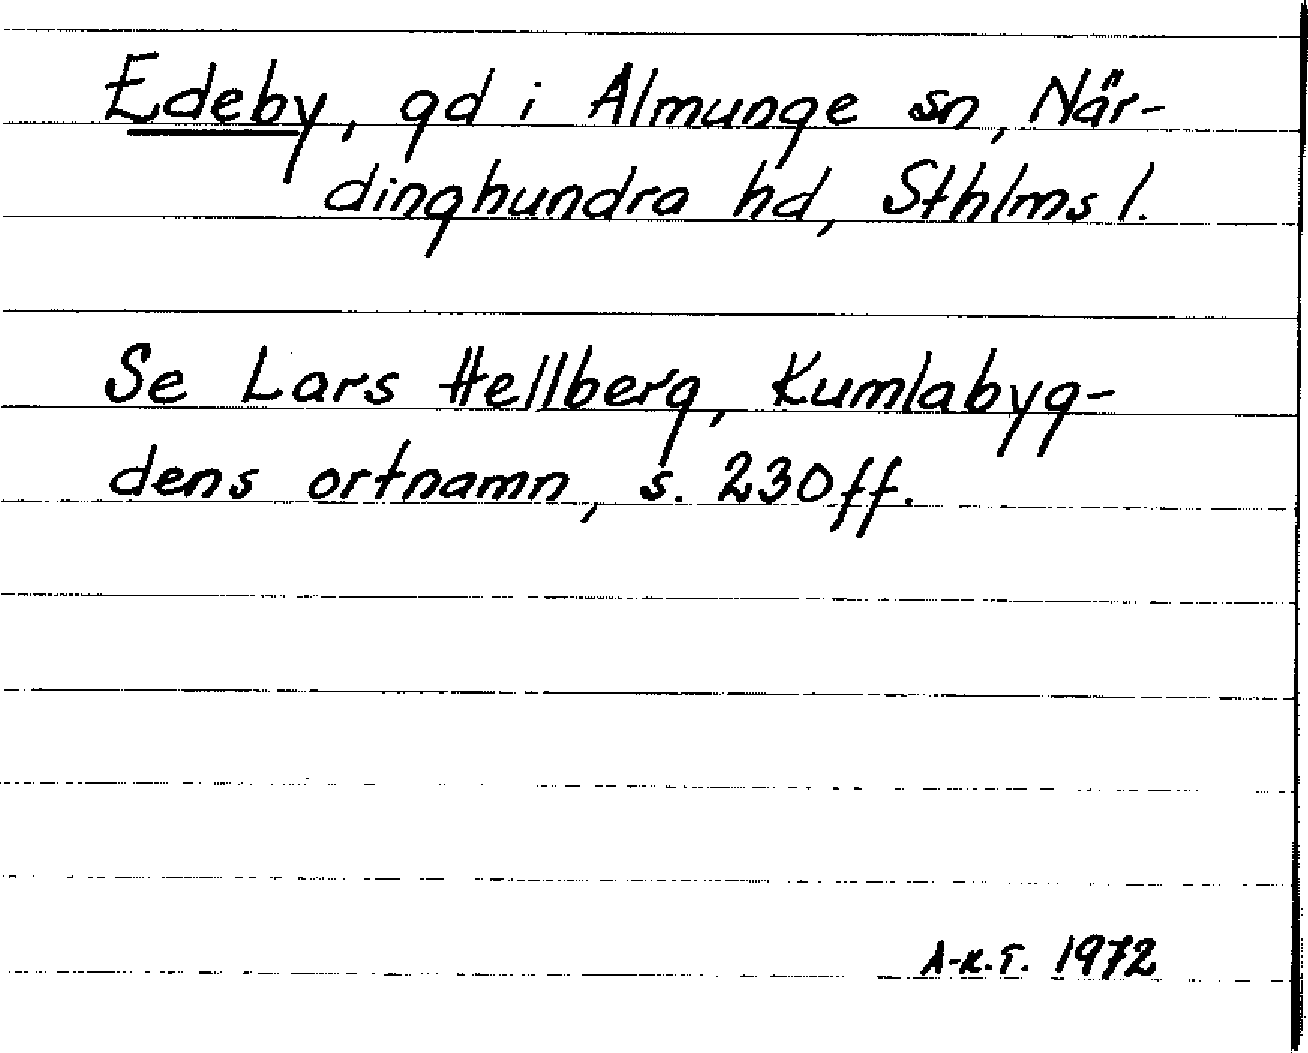 Edeby, gd i Almunge sn, När-
dinghundra hd, Sthlms l.
Se Lars Hellberg, Kumlabyg-
dens ortnamn, s. 230ff.
A-K.T. 1972